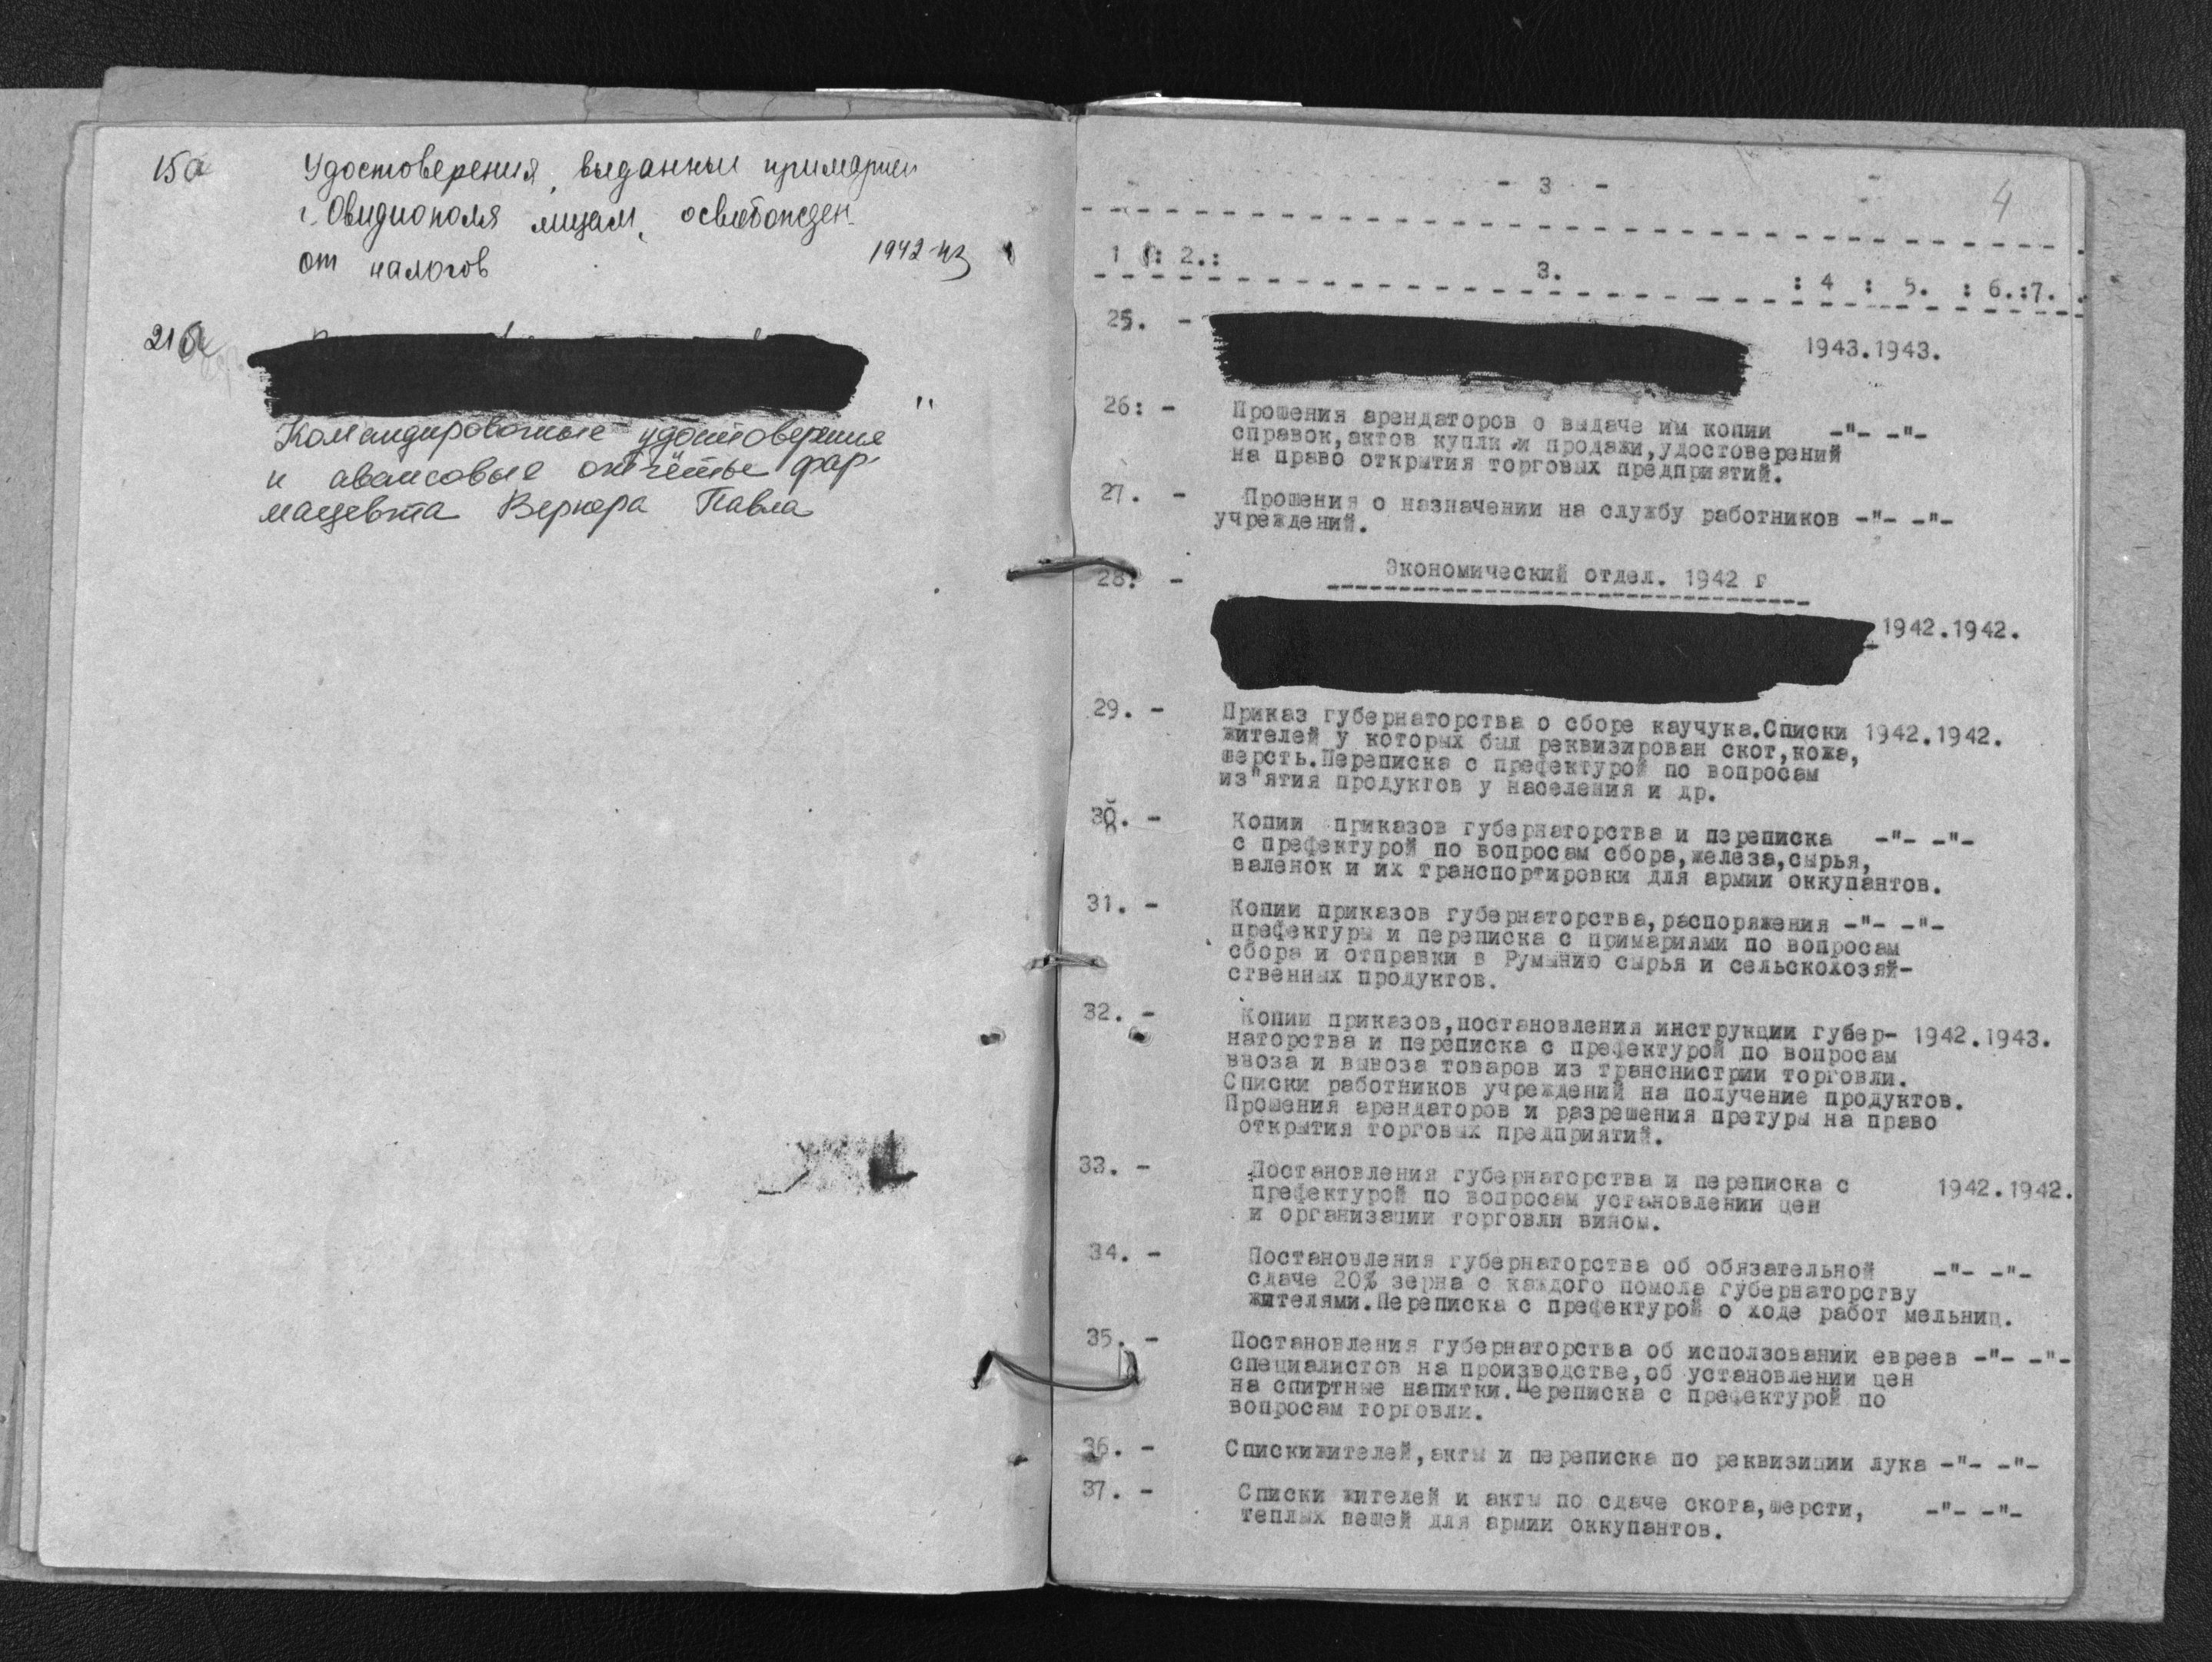 15а Удостоверения, выданные примарией
г. Овидиополя лицам, освобожден.
от налогов 1942-43
21а "
Командировочные удостоверения
и авансовые отчёты фар-
мацевта Вернера Павла
- 3 -
4
1 : 2.: 3. : 4 : 5. : 6.:7.
25. - 1943.1943.
26: - Прошения арендаторов о выдаче им копии -"- -"-
справок,актов купли и продажи,удостоверений
на право открытия торговых предприятий.
27. - Прошения о назначении на службу работников -"- -"-
учреждений.
Экономический отдел. 1942 г
28. -
1942.1942.
29. - Приказ губернаторства о сборе каучука.Списки 1942.1942.
жителей у которых был реквизирован скот,кожа,
шерсть.Переписка с префектурой по вопросам
из"ятия продуктов у населения и др.
30. - Копии приказов губернаторства и переписка -"- -"-
с префектурой по вопросам сбора,железа,сырья,
валенок и их транспортировки для армии оккупантов.
31. - Копии приказов губернаторства,распоряжения -"- -"-
префектуры и переписка с примариями по вопросам
сбора и отправки в Румынию сырья и сельскохозяй-
ственных продуктов.
32. - Копии приказов,постановления инструкции губер- 1942.1943.
наторства и переписка с префектурой по вопросам
ввоза и вывоза товаров из транснистрии торговли.
Списки работников учреждений на получение продуктов.
Прошения арендаторов и разрешения претуры на право
открытия торговых предприятий.
33. - Постановления губернаторства и переписка с 1942.1942.
префектурой по вопросам установлении цен
и организации торговли вином.
34. - Постановления губернаторства об обязательной -"- -"-
сдаче 20% зерна с каждого помола губернаторству
жителями.Переписка с префектурой о ходе работ мельниц.
35. - Постановления губернаторства об исползовании евреев -"- -"-
специалистов на производстве,об установлении цен
на спиртные напитки.Переписка с префектурой по
вопросам торговли.
36. - Спискижителей,акты и переписка по реквизиции лука -"- -"-
37. - Списки жителей и акты по сдаче скота,шерсти, -"- -"-
теплых вещей для армии оккупантов.